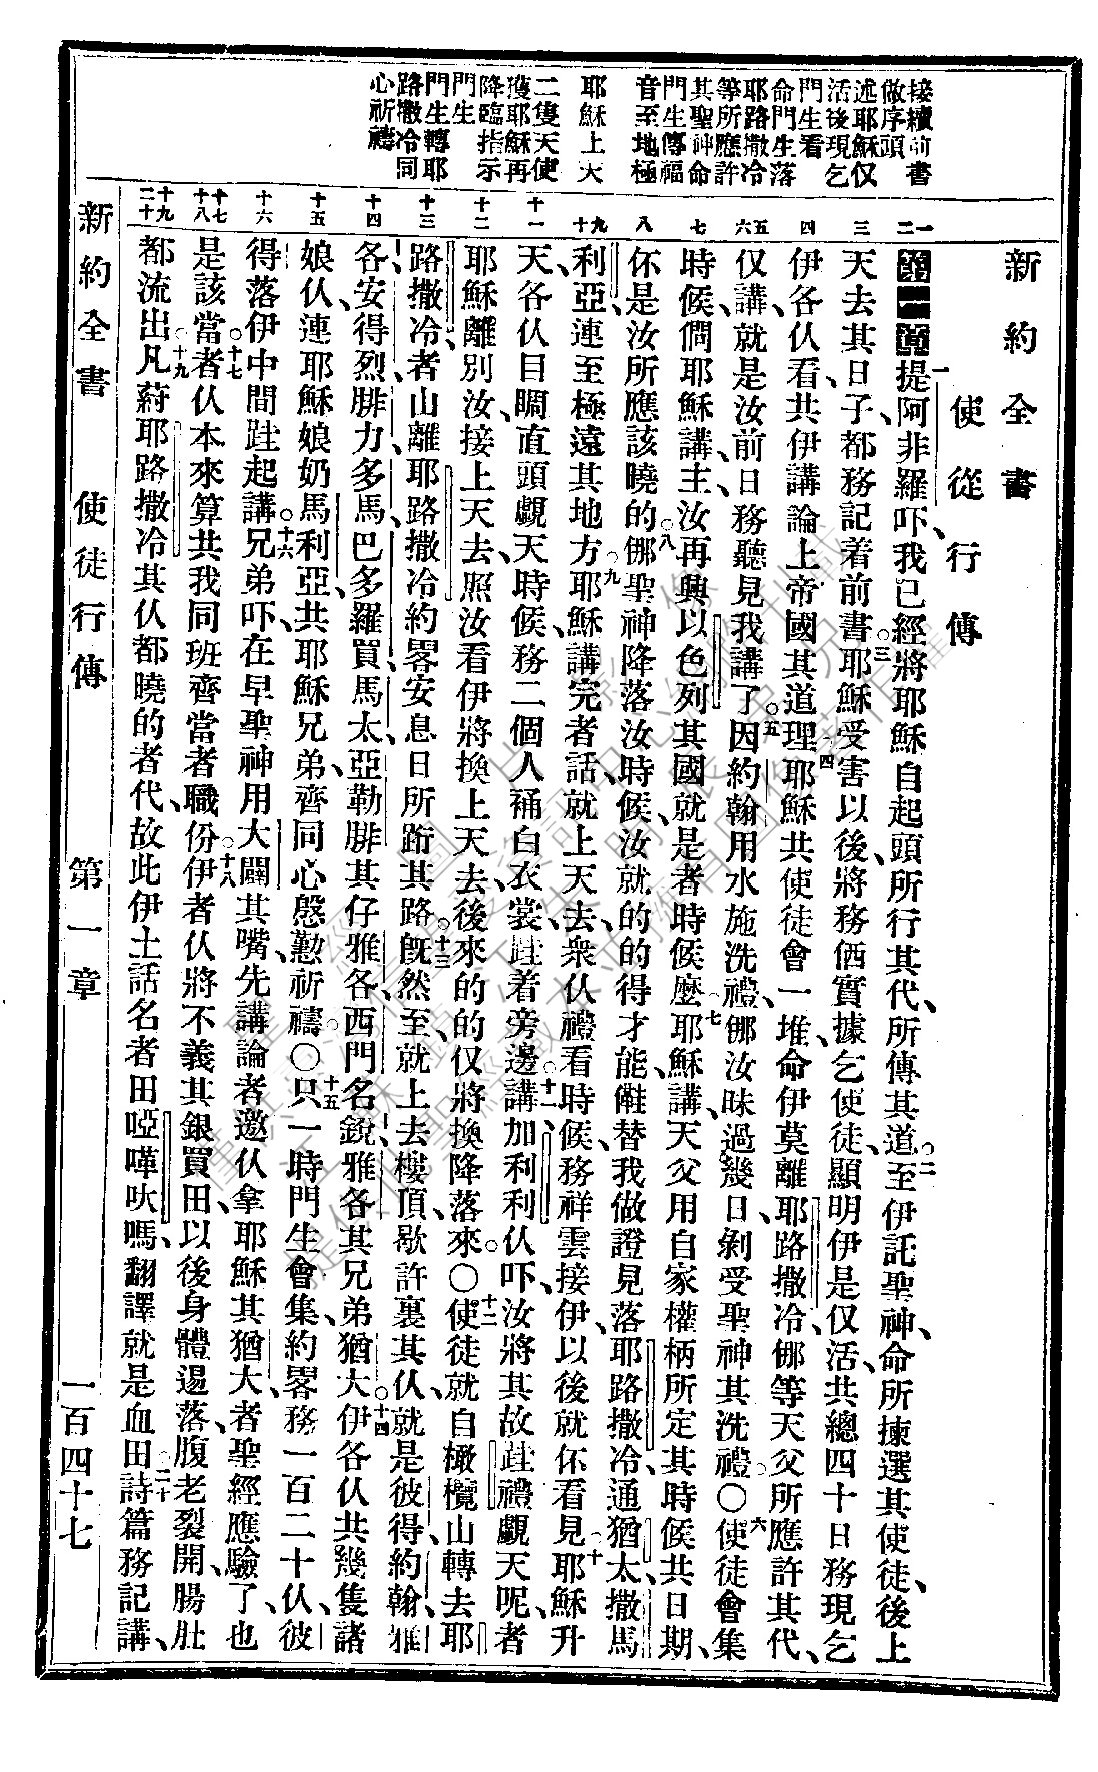 新約全書
使徒行傳
第一章一提阿非羅吓、我已經將耶穌自起頭所行其代、所傳其道。二至伊託聖神、命所揀選其使徒、後上
天去其日子、都務記着前書。三耶穌受害以後、將務価實據、乞使徒、顯明伊是仅活、共總四十日務現乞
伊各仈看、共伊講論上帝國其道理。四耶穌共使徒會一堆、命伊莫離耶路撒冷、㑚等天父所應許其代、
仅講、就是汝前日務聽見我講了。五因約翰用水施洗禮、㑚汝昧過幾日、剝受聖神其洗禮。〇六使徒會集
時候、問耶穌講、主、汝再興以色列其國、就是者時候麽。七耶穌講、天父用自家權柄所定其時候共日期、
伓是汝所應該曉的。八㑚聖神降落汝時候、汝就的的得才能、㒰替我做證見、落耶路撒冷、通猶太、撒馬
利亞、連至極遠其地方。九耶穌講完者話、就上天去、衆仈禮看時候、務祥雲接伊、以後就伓看見。十耶穌升
天、各仈目睭直頭覷天時候、務二個人䘄白衣裳、跬着旁邊。十一講、加利利仈吓、汝將其故跬禮覷天呢、者
耶穌離別汝、接上天去、照汝看伊將換上天去、後來的的仅將換降落來。〇十二使徒就自橄欖山轉去耶
路撒冷、者山離耶路撒冷、約畧安息日所䟓其路。十三旣然至、就上去樓頂、歇許裏其仈、就是彼得、約翰、雅
各、安得烈、腓力、多馬、巴多羅買、馬太、亞勒腓其仔雅各、西門名銳、雅各其兄弟猶大。十四伊各仈共幾隻諸
娘仈、連耶穌娘奶馬利亞、共耶穌兄弟、齊同心慇懃祈禱。〇十五只一時門生會集、約畧務一百二十仈、彼
得落伊中間跬起講。十六兄弟吓、在早聖神用大闢其嘴、先講論者邀仈拿耶穌其猶大、者聖經應驗了、也
是該當。十七者仈本來算共我同班、齊當者職份。十八伊者仈將不義其銀買田、以後身體逿落、腹老裂開、腸肚
都流出。十九凡蒔耶路撒冷其仈、都曉的者代、故此伊土話名者田啞嘩㕮嗎、翻譯就是血田。二十詩篇務記講、
接續前書
做序頭
述耶穌仅
活後現乞
門生看
命門生落
耶路撒冷
等所應許
其聖神命
門生傳福
音至地極
耶穌上天
二隻天使
獲耶穌再
降臨指示
門生
門生轉耶
路撒冷同
心祈禱
一
二
三
四
五
六
七
八
九
十
十一
十二
十三
十四
十五
十六
十七
十八
十九
二十
新約全書 使徒行傳 第一章 一百四十七